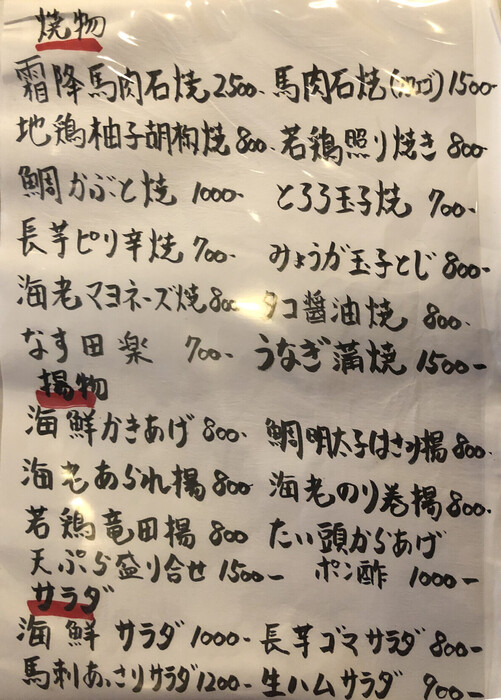 焼物
霜降馬肉石焼 2500- 馬肉石焼(フタエゴ) 1500-
地鶏柚子胡椒焼 800- 若鶏照り焼き 800-
鯛かぶと焼 1000- とろろ玉子焼 700-
長芋ピリ辛焼 700- みょうが玉子とじ 800-
海老マヨネーズ焼 800- タコ醤油焼 800-
なす田楽 700- うなぎ蒲焼 1500-
揚物
海鮮かきあげ 800- 鯛明太子はさみ揚 800-
海老あられ揚 800 海老のり巻揚 800-
若鶏竜田揚 800 たい頭からあげ
天ぷら盛り合せ 1500- ポン酢 1000-
サラダ
海鮮サラダ 1000- 長芋ゴマサラダ 800-
馬刺あっさりサラダ 1200- 生ハムサラダ 900-